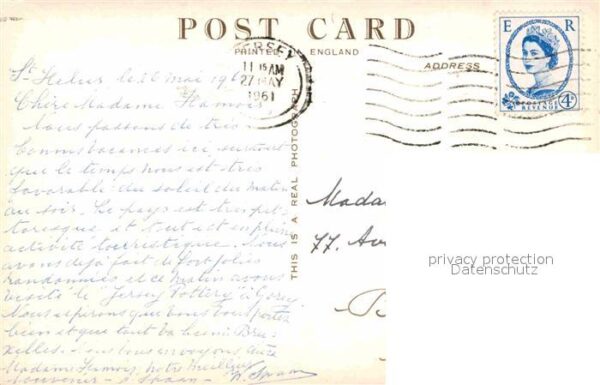 POST CARD
PRINTED ENGLAND
E R
POSTAGE
REVENUE
4D
JERSEY
11 15 AM
27 MAY
1961
ADDRESS
THIS IS A REAL PHOTOGRAPH
St Helier le 26 mai 196
Chère Madame Hamois
Nous passons de très
bonnes vacances ici, surtout
que le temps nous est très
favorable: du soleil du matin
au soir. Le pays est très pit-
toresque et tout est en pleine
activité touristique. Nous
avons déjà fait de fort jolies
randonnées et ce matin avons
visité le "Jersey Pottery" à
Nous espérons que vous vous portez
bien et que tout va bien à Bru-
xelles. Nous vous envoyons chère
Madame nos meilleurs
souvenirs
Mada
77, Av
privacy protection
Datenschutz